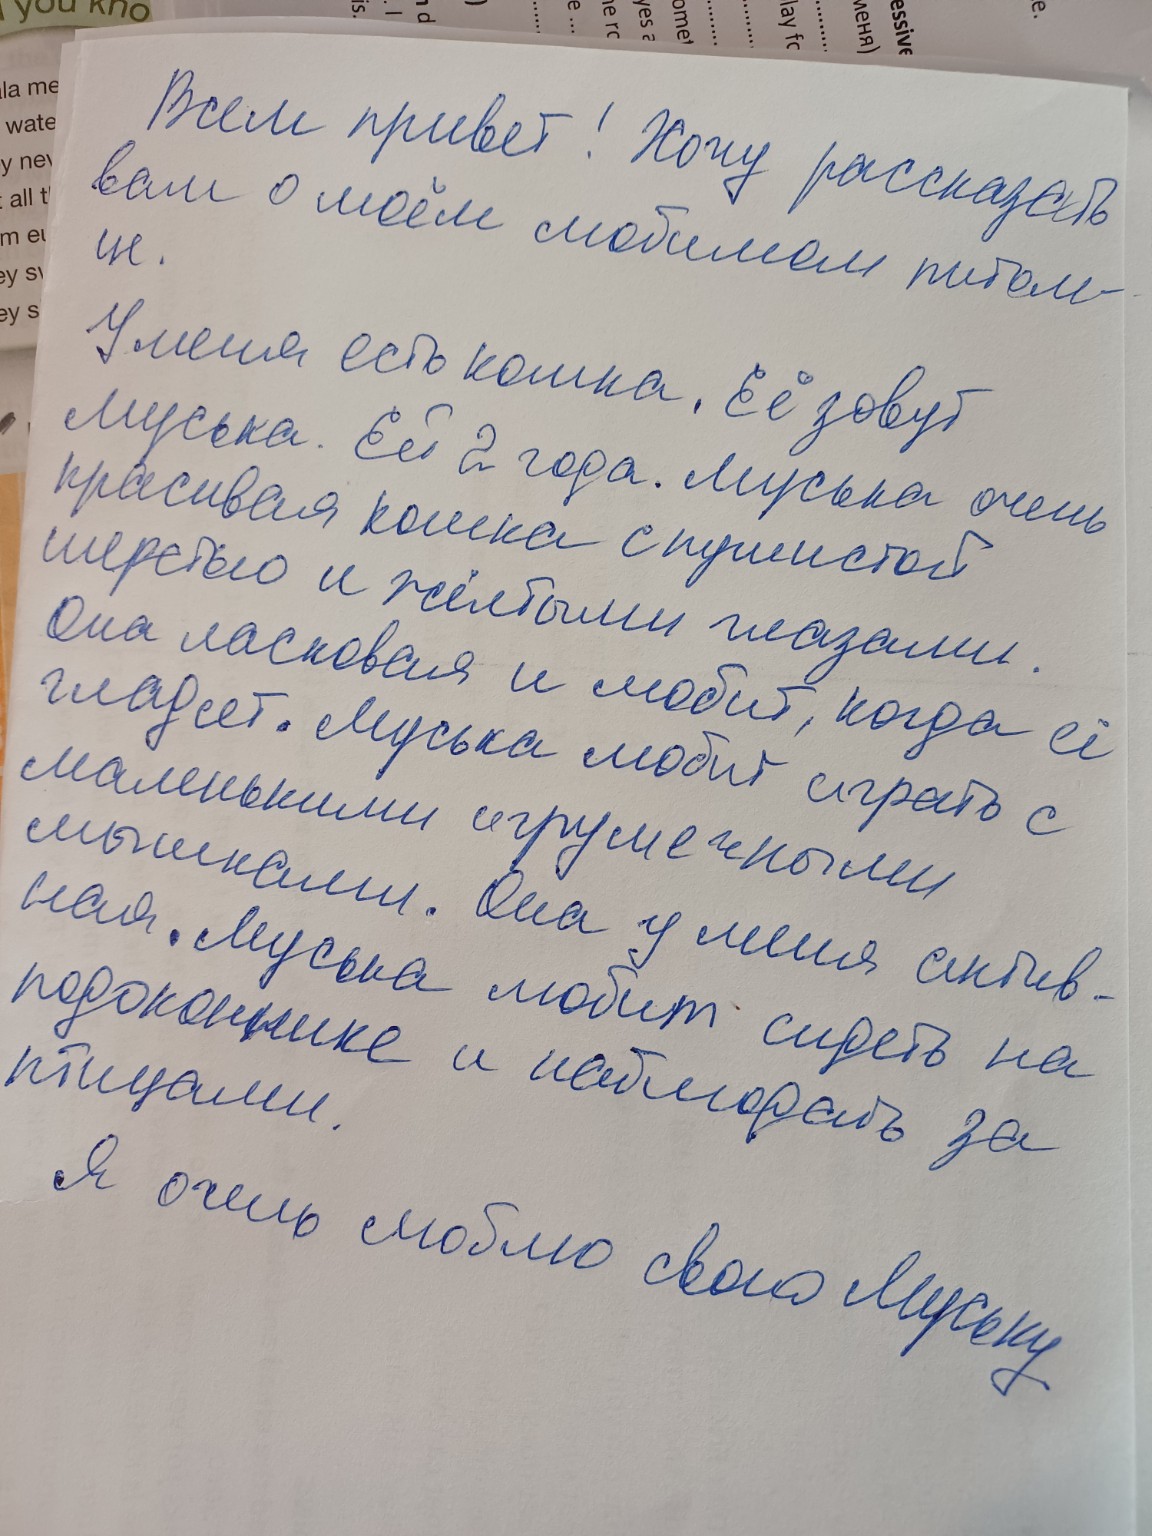 you kno
la me
wate
y nev
t all t
m eu
ey sw
ey s
essive
меня)
lay fo
omet
yes a
he ro
e.
is.
Всем привет! Хочу рассказать
вам о моём любимом питом-
це.
У меня есть кошка. Её зовут
Муська. Ей 2 года. Муська очень
красивая кошка с пушистой
шерстью и жёлтыми глазами.
Она ласковая и любит, когда её
гладят. Муська любит играть с
маленькими игрушечными
мышками. Она у меня актив-
ная. Муська любит сидеть на
подоконнике и наблюдать за
птицами.
Я очень люблю свою Муську